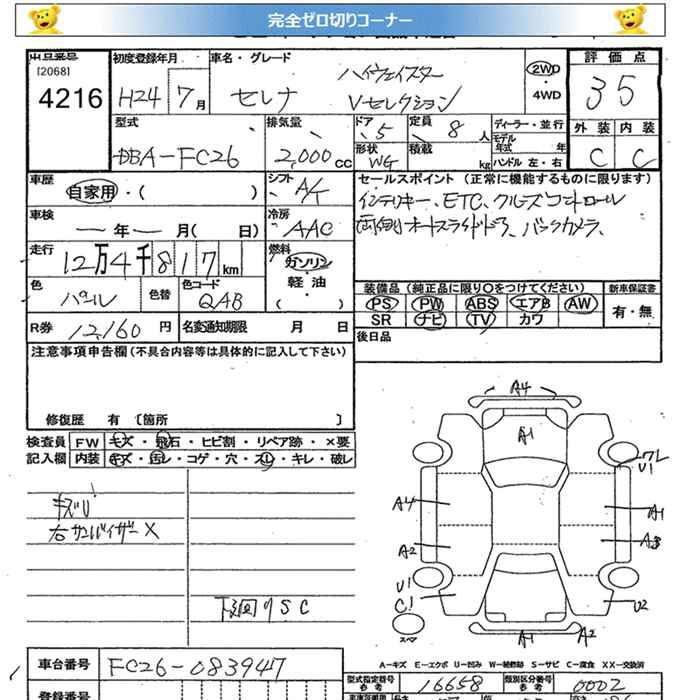 完全ゼロ切りコーナー
[2068] 初度登録年月 車名・グレード 評価点
4216 H24 7月 セレナ ハイウェイスター Vセレクション 2WD・4WD 35
型式 排気量 ドア 定員 ディーラー・並行 外装 内装
DBA-FC26 2,000cc 5 8人 モデル年式 年 C C
形状 WG 積載 kg ハンドル 左・右
車歴 自家用・( ) シフト A/ セールスポイント (正常に機能するものに限ります)
車検 ー年ー月( 日) 冷房 AAC インテリキー、ETC、クルーズコントロール
両側オートスライドドア、バックカメラ、
走行 12万4千817km 燃料 ガソリン・軽油・( )
色 パール 色替 色コード QAB 装備品 (純正品に限り○をつけてください) 新車保証書
PS PW ABS エアB AW 有・無
SR ナビ TV カワ
R券 12,160円 名変通知期限 月 日 後日品
注意事項申告欄 (不具合内容等は具体的に記入して下さい)
修復歴 有 [箇所 ]
検査員 FW キズ・飛石・ヒビ割・リペア跡・×要
記入欄 内装 キズ・汚レ・コゲ・穴・スレ・キレ・破レ
キズU
右サンバイザーX
下廻りSC
A4
A1
ワレ
U1
A4
A1
A2
A3
U1
C1
U2
スペア
A1 A2
A-キズ E-エクボ U-凹み W-補修跡 S-サビ C-腐食 XX-交換済
車台番号 FC26-083947
型式指定番号 参考 16658 類別区分番号 参考 0002
登録番号